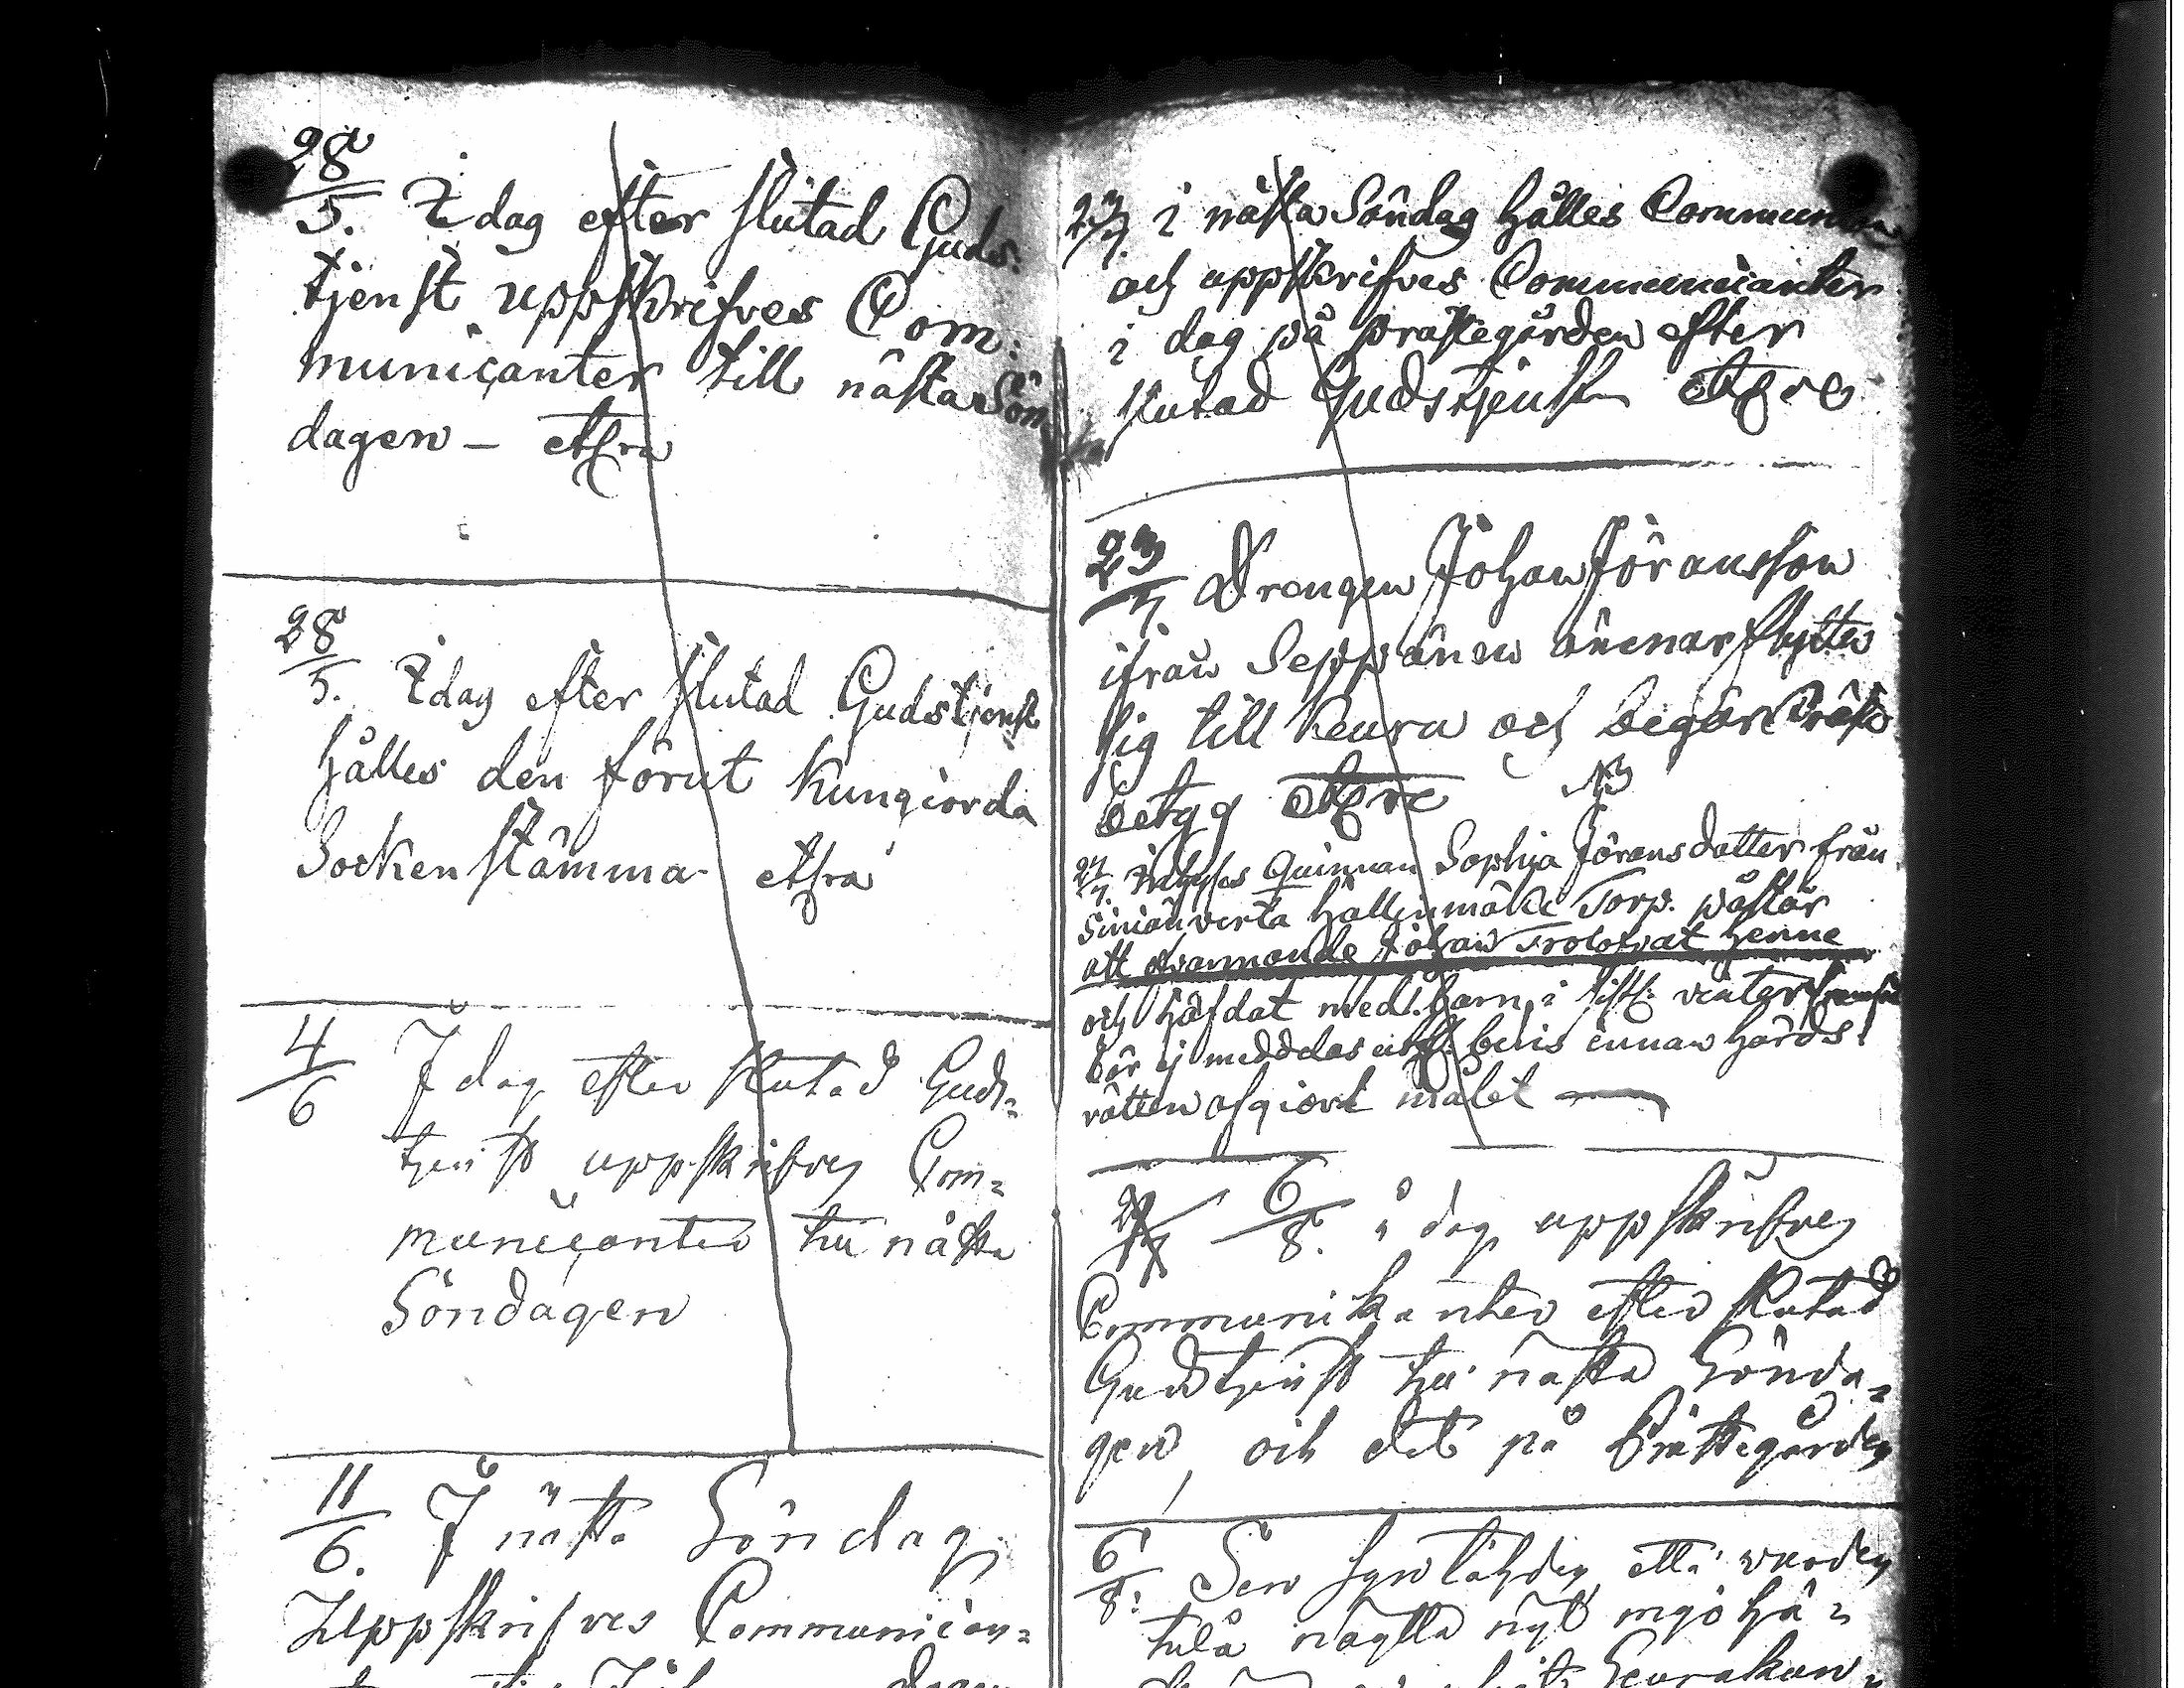 28
5. I dag efter slutad Guds:
tjenst uppskrifves Com:
municanter till nästa Sön
dagen – etfra
28
5. I dag efter slutad Gudstjenst
hålles den förut kungiorda
Socken stämma etfra
4
6 I dag efter slutad Guds=
tjenst uppskrifves Com=
municanter till nästa
Söndagen
11
6. I nästa Söndag
Uppskrifves Communican=
23/7. i nästa Söndag hålles Communion
och uppskrifves Communicanter
i dag på prästegården efter
slutad Gudstjenst
23
7. Drengen Johan Jöransson
ifrån Seppänen ämnar flytta
sig till Keuru och begär Präst
betyg
NB
Qvinnan Sophia Jöransdatter från
Torp. påstår
att ofvannämnde Johan henne
och häfdat med barn i sistl. vinter
bör ej meddelas bevis innan härads
rätten afgiort målet —
6
8. i dag uppskrifves
Communikanter efter slutad
Gudstjenst till nästa Sönda=
gen, och det på Prästegården
6
8: Sen syw tähden että
tulå nyt myö hä=
Seurakun